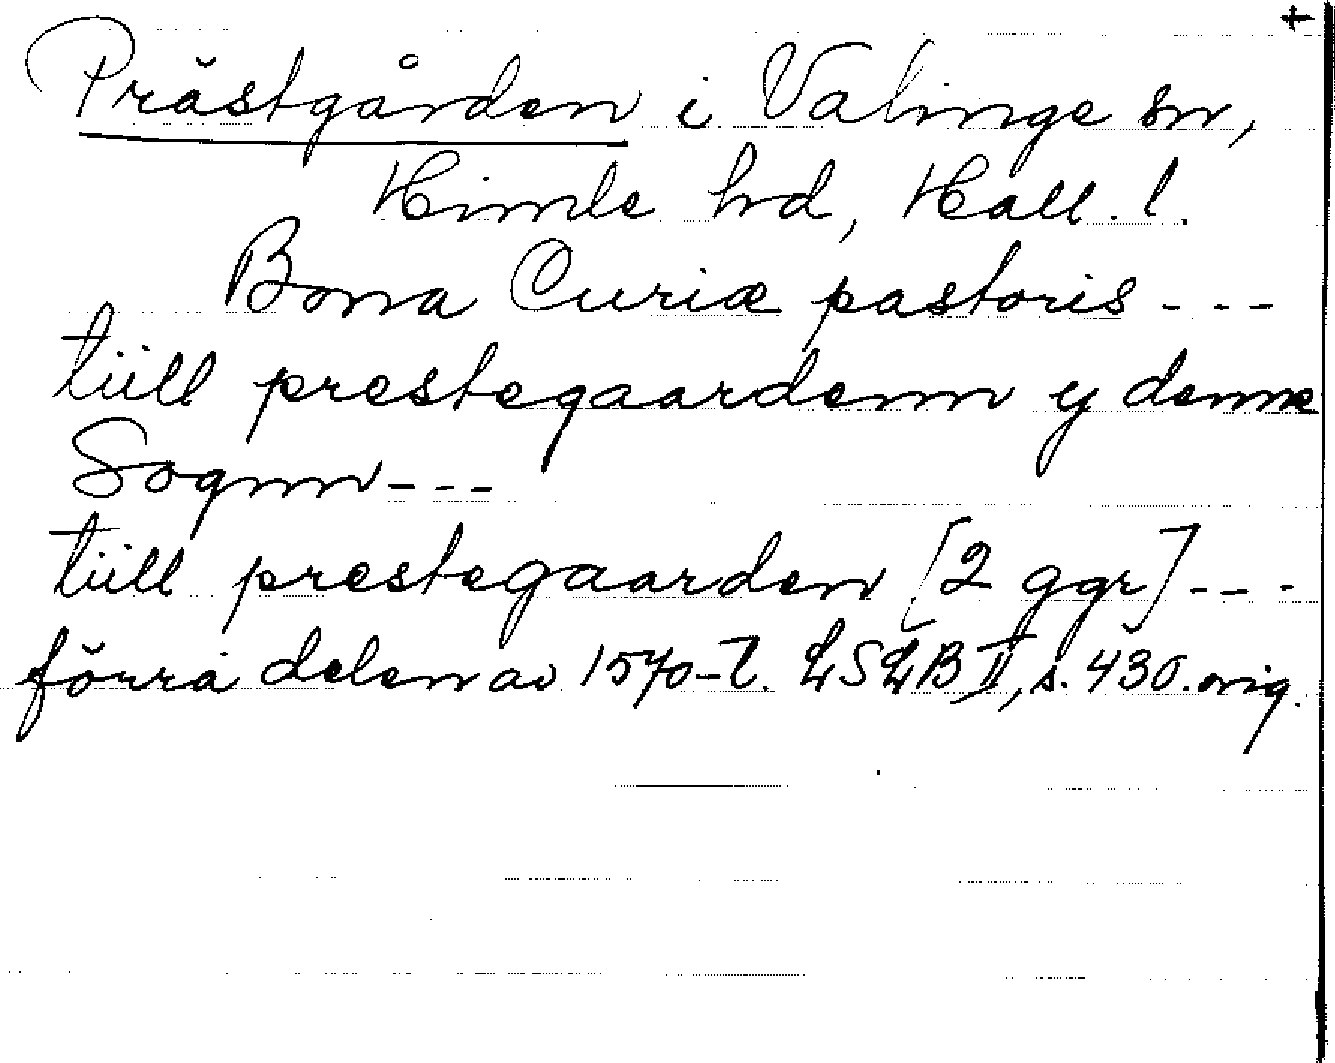 +
Prästgården i Valinge sn,
Himle hd, Hall. l.
Bona Curiæ pastoris - - -
tüll prestegaardenn y denne
Sognn - - -
tüll prestegaarden [2 ggr] - - -
förra delen av 1570-t. LSLB II, s. 430. orig.